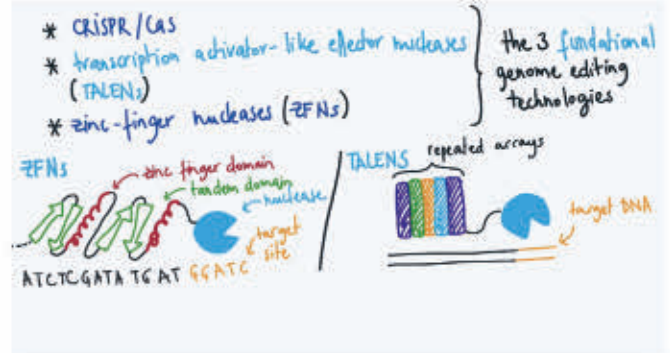 * CRISPR/Cas
* transcription activator-like effector nucleases
(TALENs)
* zinc-finger nucleases (ZFNs)
the 3 fundational
genome editing
technologies
ZFNs
zinc finger domain
tandem domain
nuclease
target
site
ATCTCGATA TGAT GGATC
TALENS
repeated arrays
target DNA